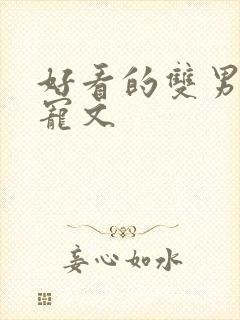 好看的雙男
寵文
妄心如水